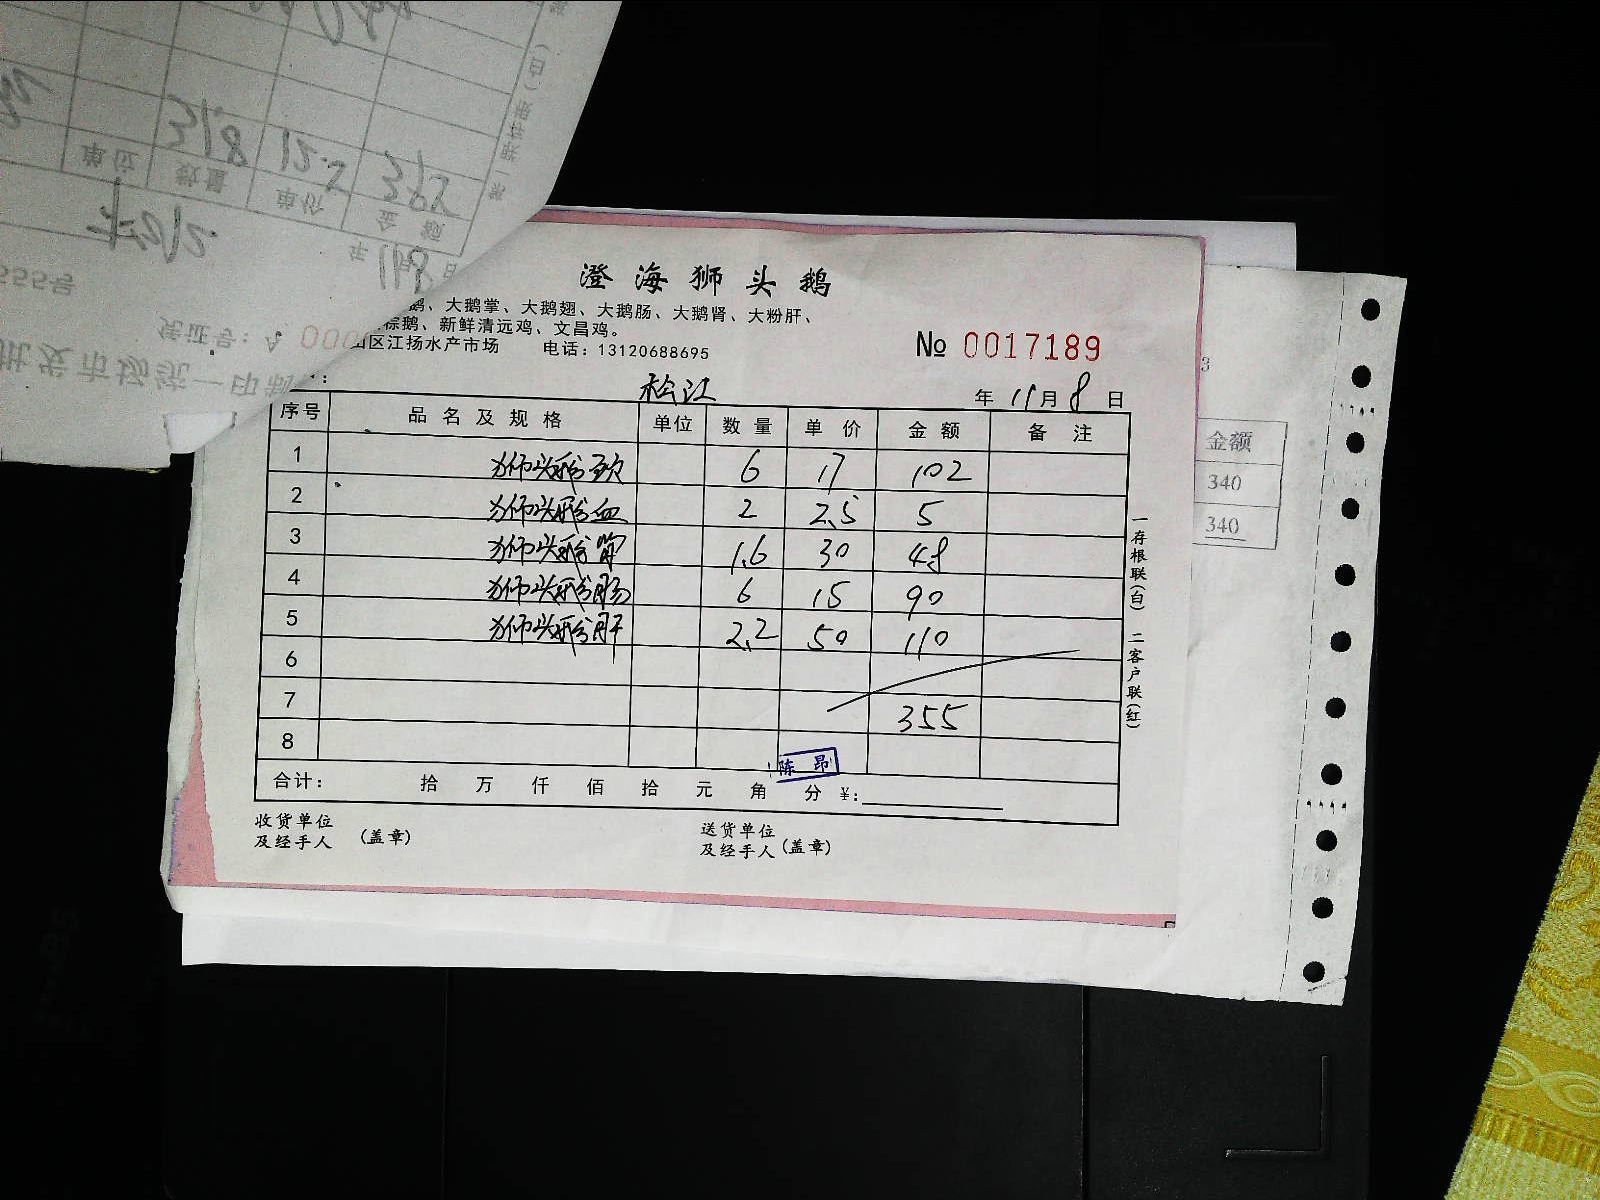 澄海狮头鹅
鹅、大鹅掌、大鹅翅、大鹅肠、大鹅肾、大粉肝、
棕鹅、新鲜清远鸡、文昌鸡。
山区江扬水产市场 电话：13120688695
№ 0017189
松江
年 11月 8 日
序号 品名及规格 单位 数量 单价 金额 备注
1 狮头鹅 6 17 102
2 狮头鹅血 2 2.5 5
3 狮头鹅 1.6 30 48
4 狮头鹅肠 6 15 90
5 狮头鹅肝 2.2 50 110
6
7 355
8
陈昂
合计： 拾 万 仟 佰 拾 元 角 分 ¥:
收货单位
及经手人 (盖章)
送货单位
及经手人 (盖章)
一存根联(白) 二客户联(红)
3
金额
340
340
年 11月8日
单位 数量 单价 金额
31.8 12.5
凭证号：A 000
批发市场统一印制
555号